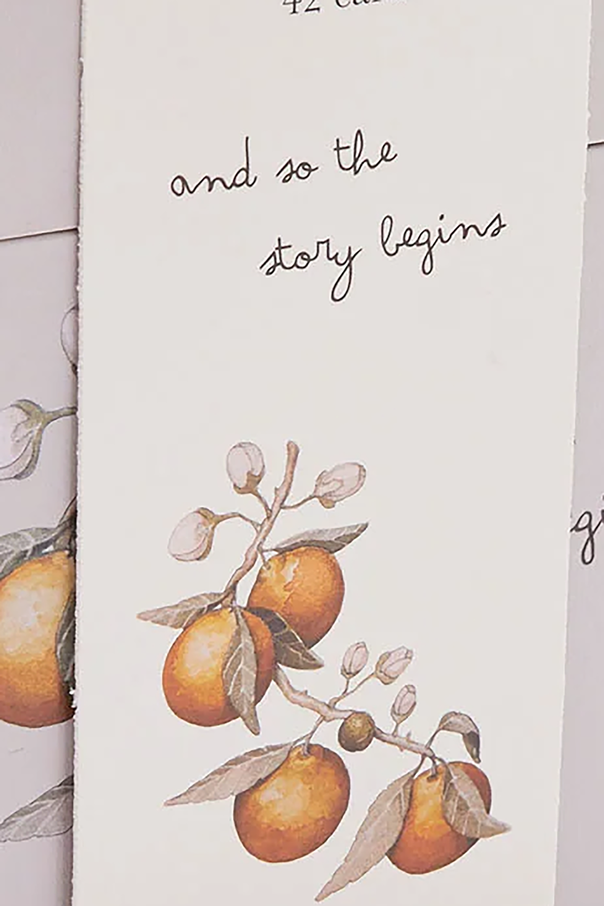 42
and so the
story begins